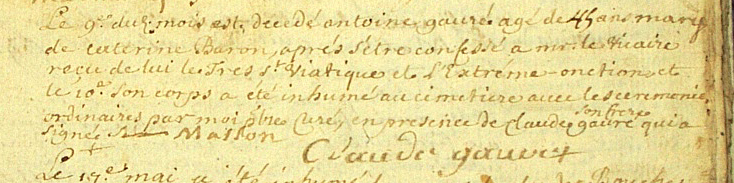 Le 9e du mois est decedé antoine gaurés agé de 45 ans mary
de caterine Baron, aprés s'etre confessé a mr. le Vicaire
reçu de lui le Tres St Viatique et l'Extréme-onction, et
le 10e son corps a été inhumé au cimetiere avec les ceremonies
son frere
ordinaires par moi pbre Curé, en presence de Claude gauré qui a
signé Masson
Claude gaurés
Le 17e mai a été inhumé